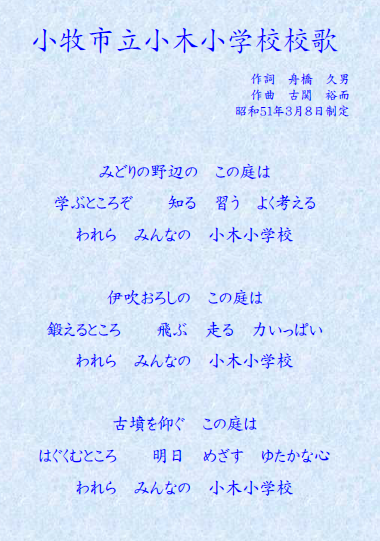 小牧市立小木小学校校歌
作詞　舟橋　久男
作曲　古関　裕而
昭和51年3月8日制定
みどりの野辺の　この庭は
学ぶところぞ　　知る　習う　よく考える
われら　みんなの　小木小学校
伊吹おろしの　この庭は
鍛えるところ　　飛ぶ　走る　力いっぱい
われら　みんなの　小木小学校
古墳を仰ぐ　この庭は
はぐくむところ　　明日　めざす　ゆたかな心
われら　みんなの　小木小学校